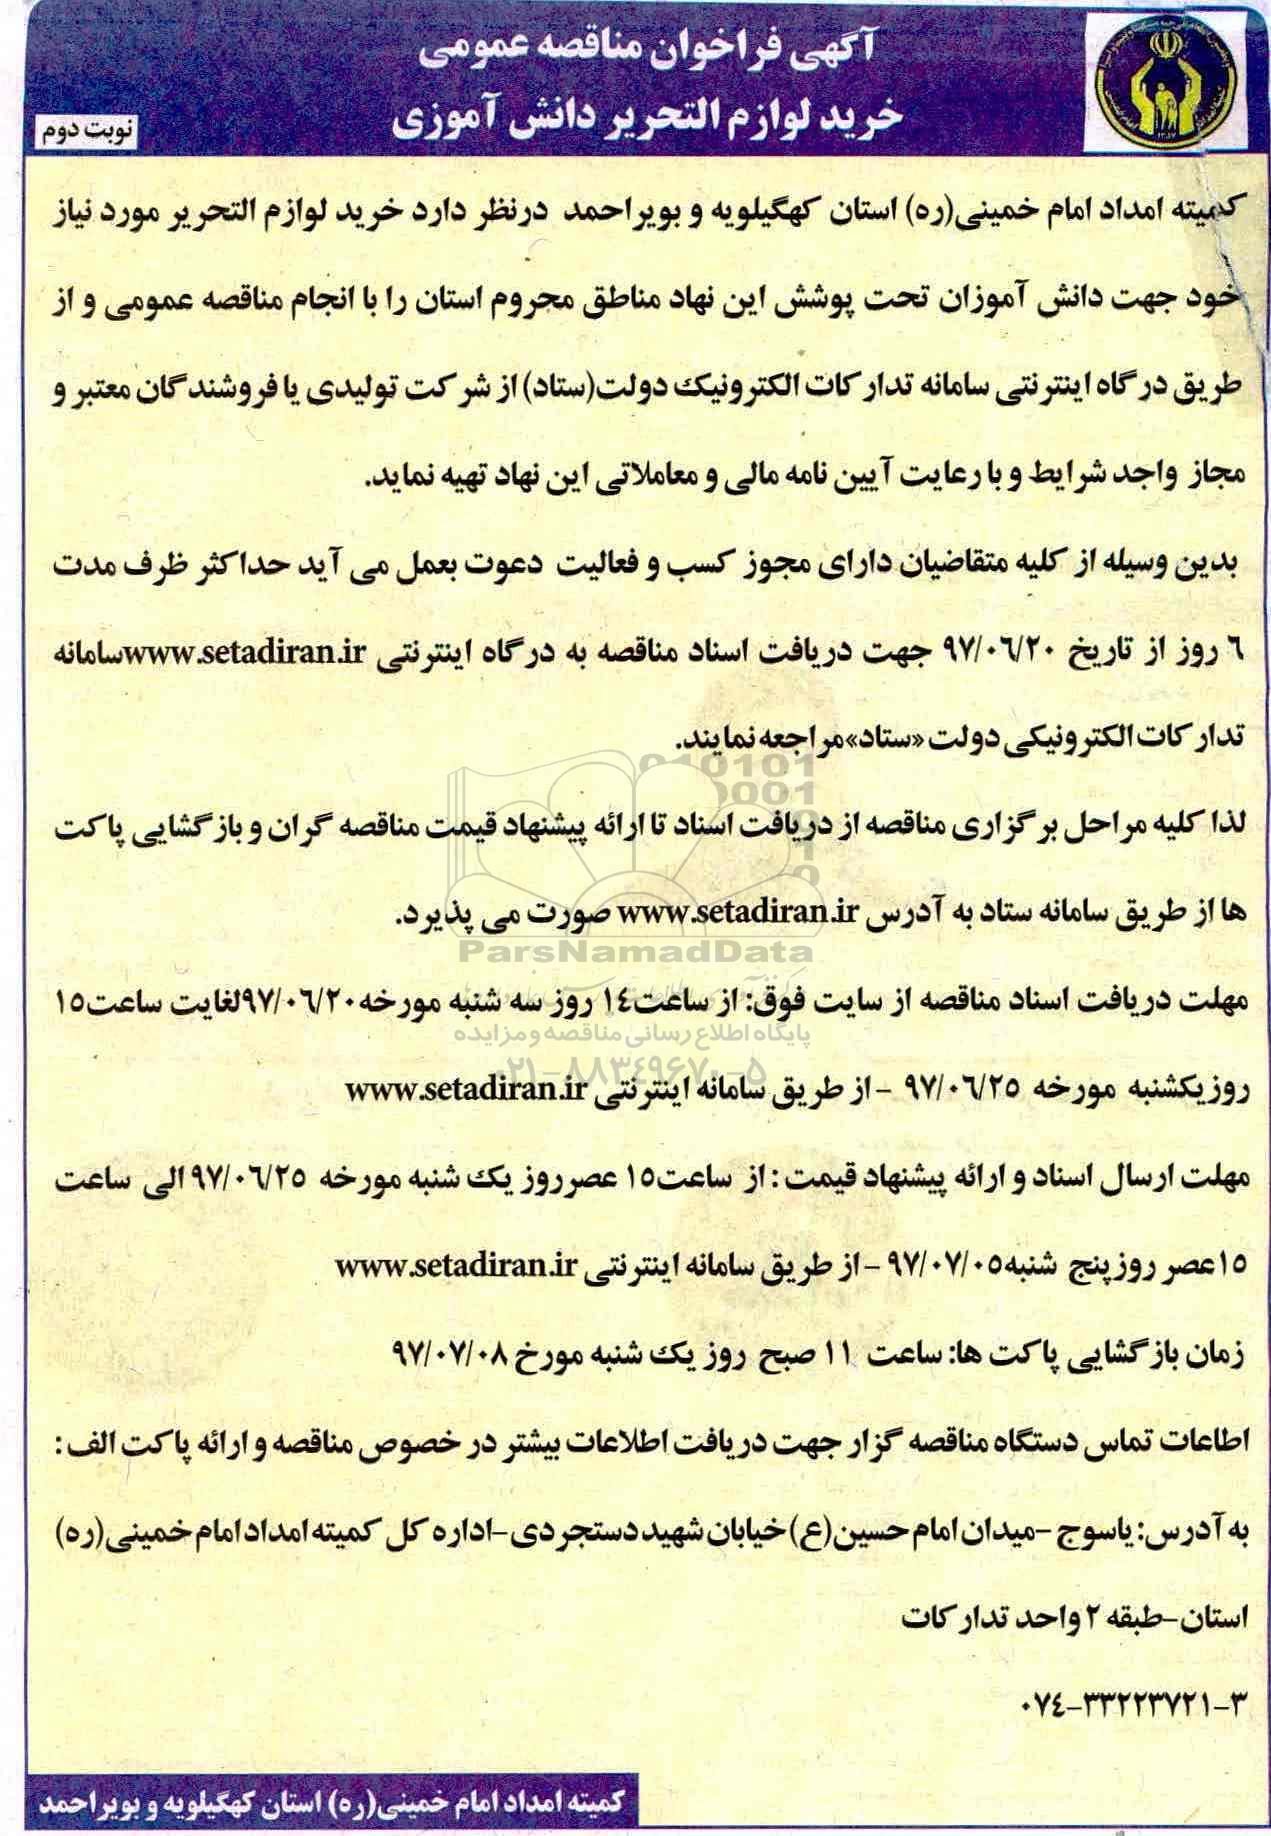 آگهی فراخوان مناقصه عمومی
خرید لوازم التحریر دانش آموزی
نوبت دوم
کمیته امداد امام خمینی(ره) استان کهگیلویه و بویراحمد درنظر دارد خرید لوازم التحریر مورد نیاز
خود جهت دانش آموزان تحت پوشش این نهاد مناطق محروم استان را با انجام مناقصه عمومی و از
طریق درگاه اینترنتی سامانه تدارکات الکترونیک دولت(ستاد) از شرکت تولیدی یا فروشندگان معتبر و
مجاز واجد شرایط و با رعایت آیین نامه مالی و معاملاتی این نهاد تهیه نماید.
بدین وسیله از کلیه متقاضیان دارای مجوز کسب و فعالیت دعوت بعمل می آید حداکثر ظرف مدت
۶ روز از تاریخ ۹۷/۰۶/۲۰ جهت دریافت اسناد مناقصه به درگاه اینترنتی www.setadiran.irسامانه
تدارکات الکترونیکی دولت «ستاد»مراجعه نمایند.
لذا کلیه مراحل برگزاری مناقصه از دریافت اسناد تا ارائه پیشنهاد قیمت مناقصه گران و بازگشایی پاکت
ها از طریق سامانه ستاد به آدرس www.setadiran.ir صورت می پذیرد.
ParsNamadData
مهلت دریافت اسناد مناقصه از سایت فوق: از ساعت۱۴ روز سه شنبه مورخه۹۷/۰۶/۲۰لغایت ساعت۱۵
پایگاه اطلاع رسانی مناقصه و مزایده
روزیکشنبه مورخه ۹۷/۰۶/۲۵ - از طریق سامانه اینترنتی www.setadiran.ir
۰۲۱-۸۸۳۴۹۶۷۰-۵
مهلت ارسال اسناد و ارائه پیشنهاد قیمت : از ساعت۱۵ عصرروز یک شنبه مورخه ۹۷/۰۶/۲۵ الی ساعت
۱۵عصر روزپنج شنبه۹۷/۰۷/۰۵ - از طریق سامانه اینترنتی www.setadiran.ir
زمان بازگشایی پاکت ها: ساعت ۱۱ صبح روز یک شنبه مورخ ۹۷/۰۷/۰۸
اطاعات تماس دستگاه مناقصه گزار جهت دریافت اطلاعات بیشتر در خصوص مناقصه و ارائه پاکت الف :
به آدرس: یاسوج -میدان امام حسین(ع) خیابان شهید دستجردی-اداره کل کمیته امداد امام خمینی(ره)
استان-طبقه ۲ واحد تدارکات
۰۷۴-۳۳۲۲۳۷۲۱-۳
کمیته امداد امام خمینی(ره) استان کهگیلویه و بویراحمد